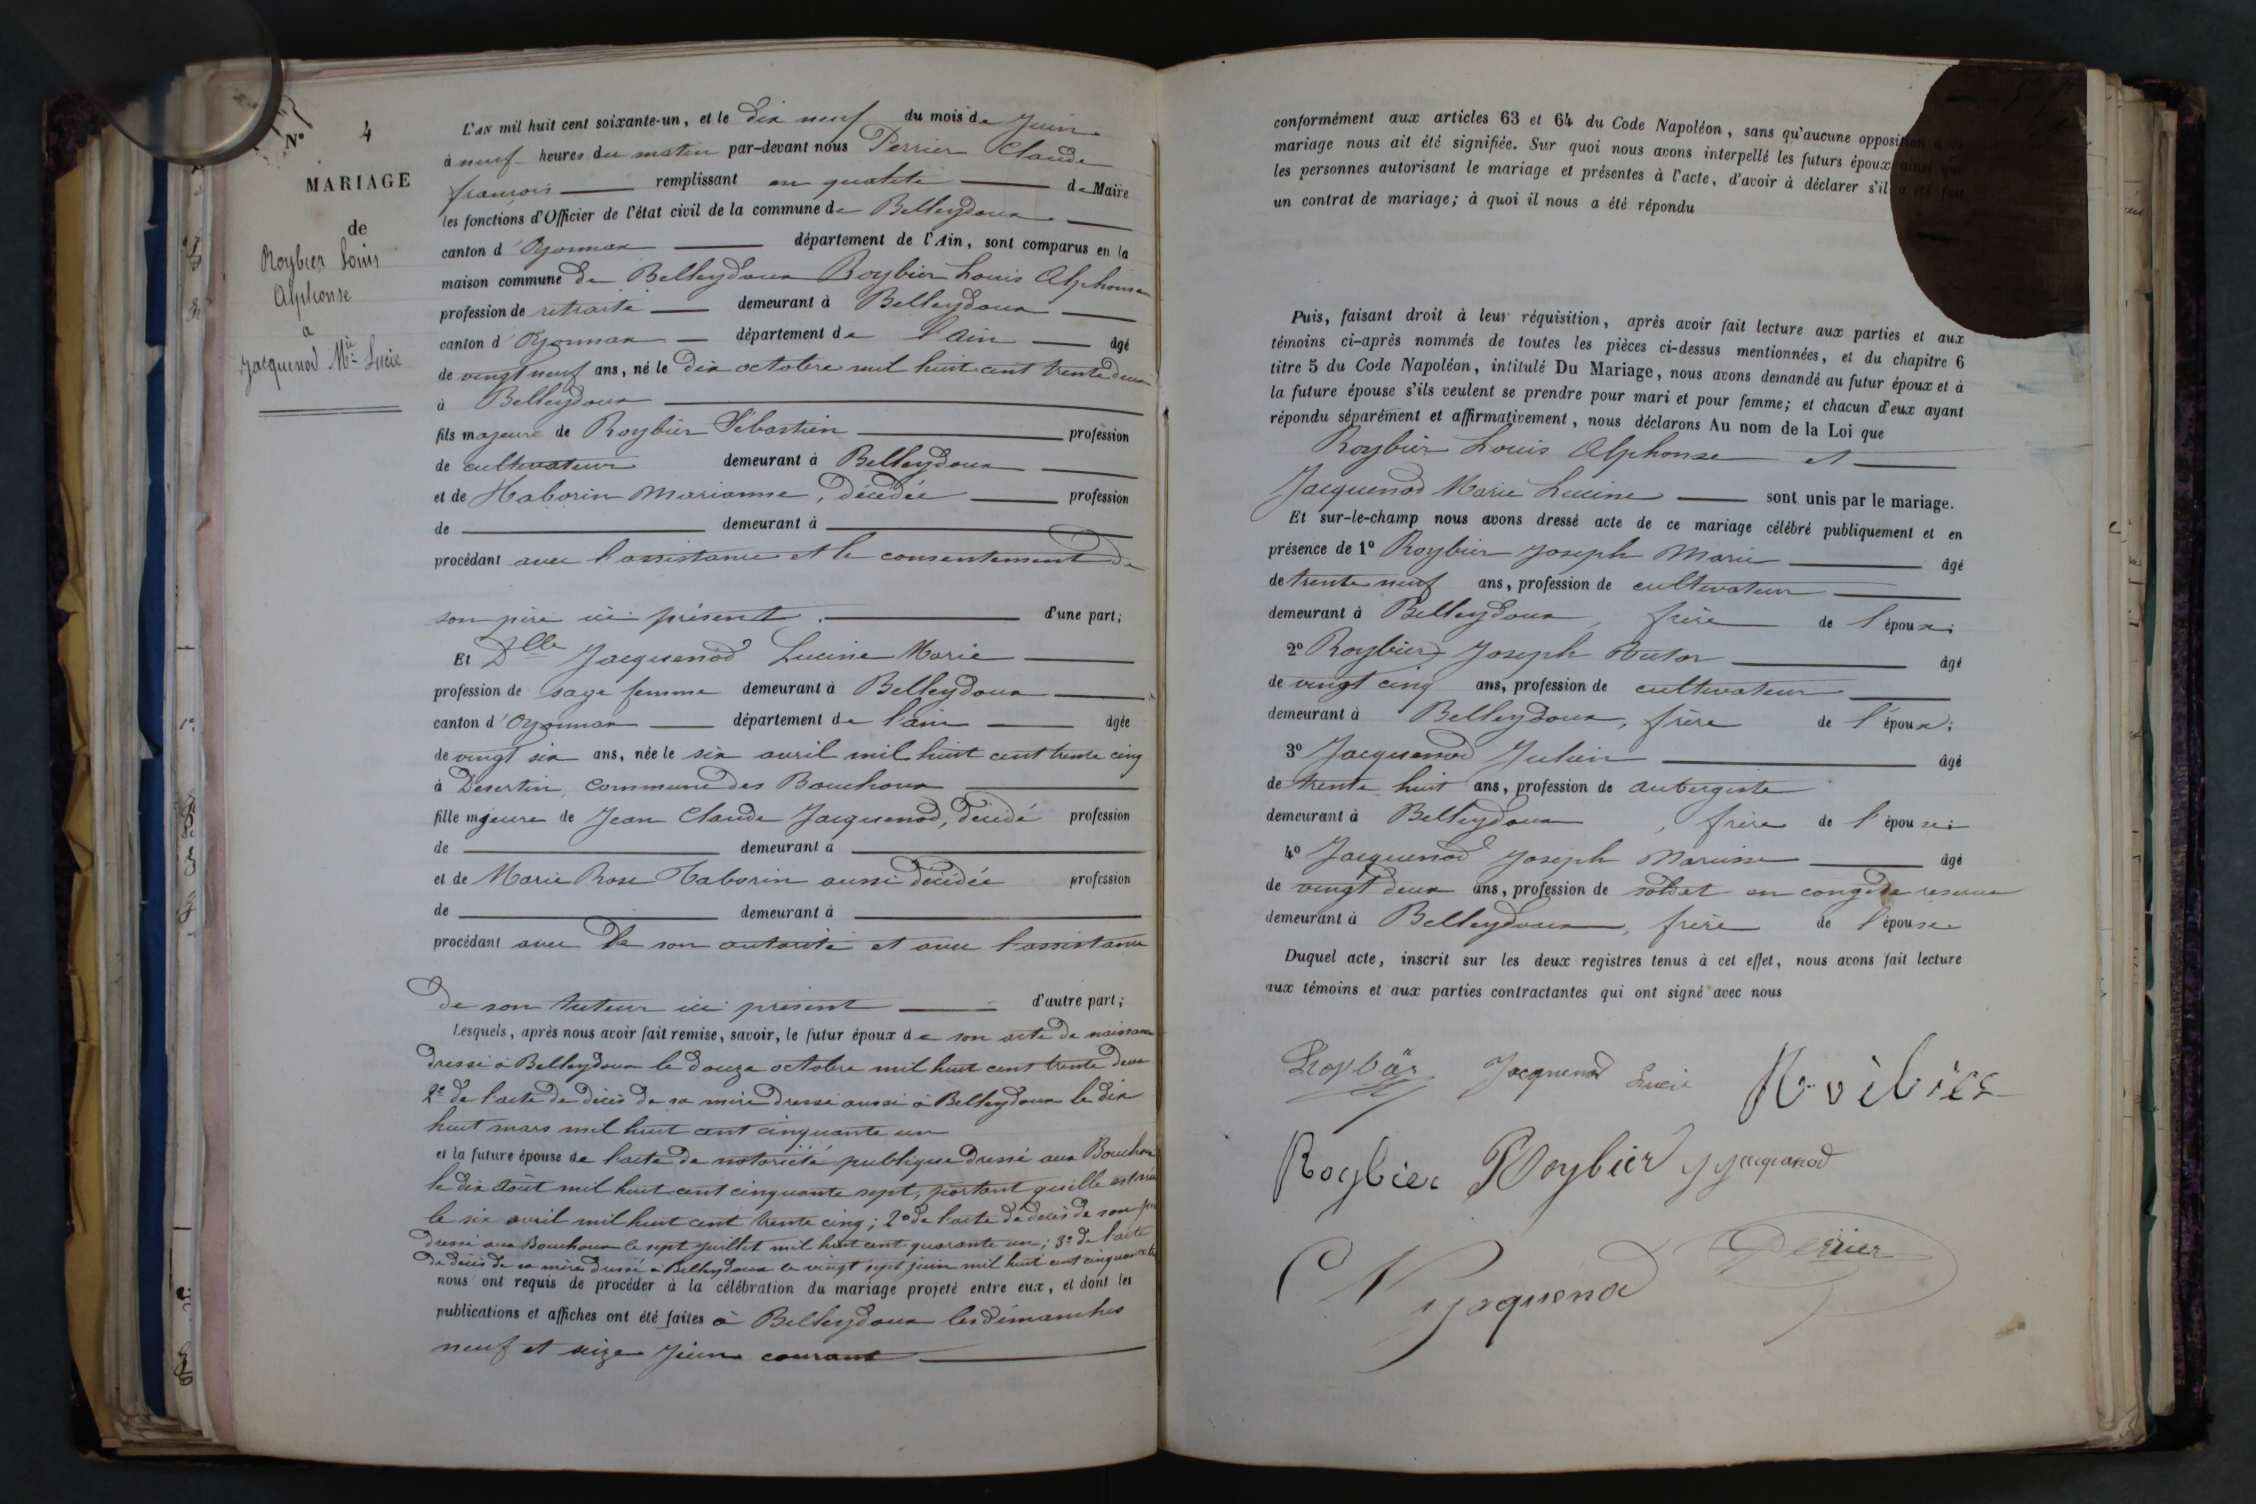 N° 4
MARIAGE
de
Roybier Louis
Alphonse
à
Jacquenod Mie Lucie
L'AN mil huit cent soixante-un, et le dix neuf du mois de Juin
à neuf heures du matin par-devant nous Perrier Claude
françois remplissant en qualité de Maire
les fonctions d'Officier de l'état civil de la commune de Belleydoux
canton d'Oyonnax département de l'Ain, sont comparus en la
maison commune de Belleydoux Roybier Louis Alphonse
profession de retraité demeurant à Belleydoux
canton d'Oyonnax département de l'Ain âgé
de vingt neuf ans, né le dix octobre mil huit cent trente deux
à Belleydoux
fils majeure de Roybier Sébastien profession
de cultivateur demeurant à Belleydoux
et de Taborin Marianne, décédée profession
de demeurant à
procédant avec l'assistance et le consentement de
son père ici présent. d'une part;
Et Dlle Jacquenod Lucine Marie
profession de sage femme demeurant à Belleydoux
canton d'Oyonnax département de l'ain âgée
de vingt six ans, née le six avril mil huit cent trente cinq
à Désertin, commune des Bouchoux
fille majeure de Jean Claude Jacquenod, décédé profession
de demeurant à
et de Marie Rose Taborin aussi décédée profession
de demeurant à
procédant avec de son autorité et avec l'assistance
de son tuteur ici présent d'autre part;
Lesquels, après nous avoir fait remise, savoir, le futur époux de son acte de naissance
dressé à Belleydoux le douze octobre mil huit cent trente deux
2° de l'acte de décès de sa mère dressé aussi à Belleydoux le dix
huit mars mil huit cent cinquante un
et la future épouse de l'acte de notoriété publique dressé aux Bouchoux
le dix août mil huit cent cinquante sept, portant qu'elle est née
le six avril mil huit cent trente cinq; 2° de l'acte de décès de son père
dressé aux Bouchoux le sept juillet mil huit cent quarante un; 3° de l'acte
de décès de sa mère dressé à Belleydoux le vingt sept juin mil huit cent cinquante
nous ont requis de procéder à la célébration du mariage projeté entre eux, et dont les
publications et affiches ont été faites à Belleydoux les dimanches
neuf et seize Juin courant
conformément aux articles 63 et 64 du Code Napoléon, sans qu'aucune opposition
mariage nous ait été signifiée. Sur quoi nous avons interpellé les futurs époux ainsi que
les personnes autorisant le mariage et présentes à l'acte, d'avoir à déclarer s'il a été fait
un contrat de mariage; à quoi il nous a été répondu
Puis, faisant droit à leur réquisition, après avoir fait lecture aux parties et aux
témoins ci-après nommés de toutes les pièces ci-dessus mentionnées, et du chapitre 6
titre 5 du Code Napoléon, intitulé Du Mariage, nous avons demandé au futur époux et à
la future épouse s'ils veulent se prendre pour mari et pour femme; et chacun d'eux ayant
répondu séparément et affirmativement, nous déclarons Au nom de la Loi que
Roybier Louis Alphonse et
Jacquenod Marie Lucine sont unis par le mariage.
Et sur-le-champ nous avons dressé acte de ce mariage célébré publiquement et en
présence de 1° Roybier Joseph Marie âgé
de trente neuf ans, profession de cultivateur
demeurant à Belleydoux, frère de l'époux;
2° Roybier Joseph Victor âgé
de vingt cinq ans, profession de cultivateur
demeurant à Belleydoux, frère de l'époux;
3° Jacquenod Julien âgé
de trente huit ans, profession de aubergiste
demeurant à Belleydoux, frère de l'épouse;
4° Jacquenod Joseph Marius âgé
de vingt deux ans, profession de soldat en congé de reserve
demeurant à Belleydoux, frère de l'épouse
Duquel acte, inscrit sur les deux registres tenus à cet effet, nous avons fait lecture
aux témoins et aux parties contractantes qui ont signé avec nous
Jacquenod Lucie
Roybier Roybier J Jacquenod
Jaquenod Perrier